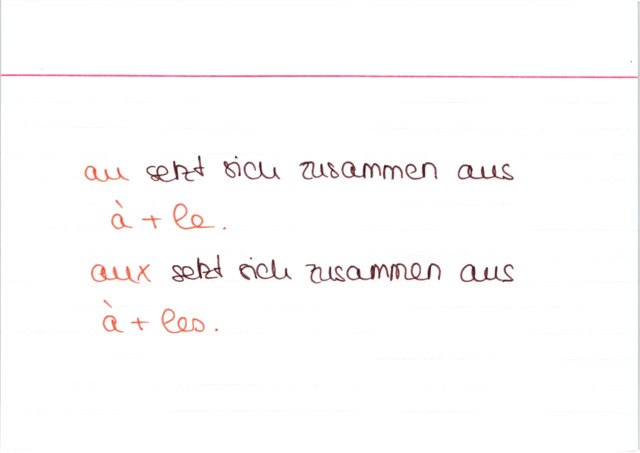 au setzt sich zusammen aus
à + le.
aux setzt sich zusammen aus
à + les.